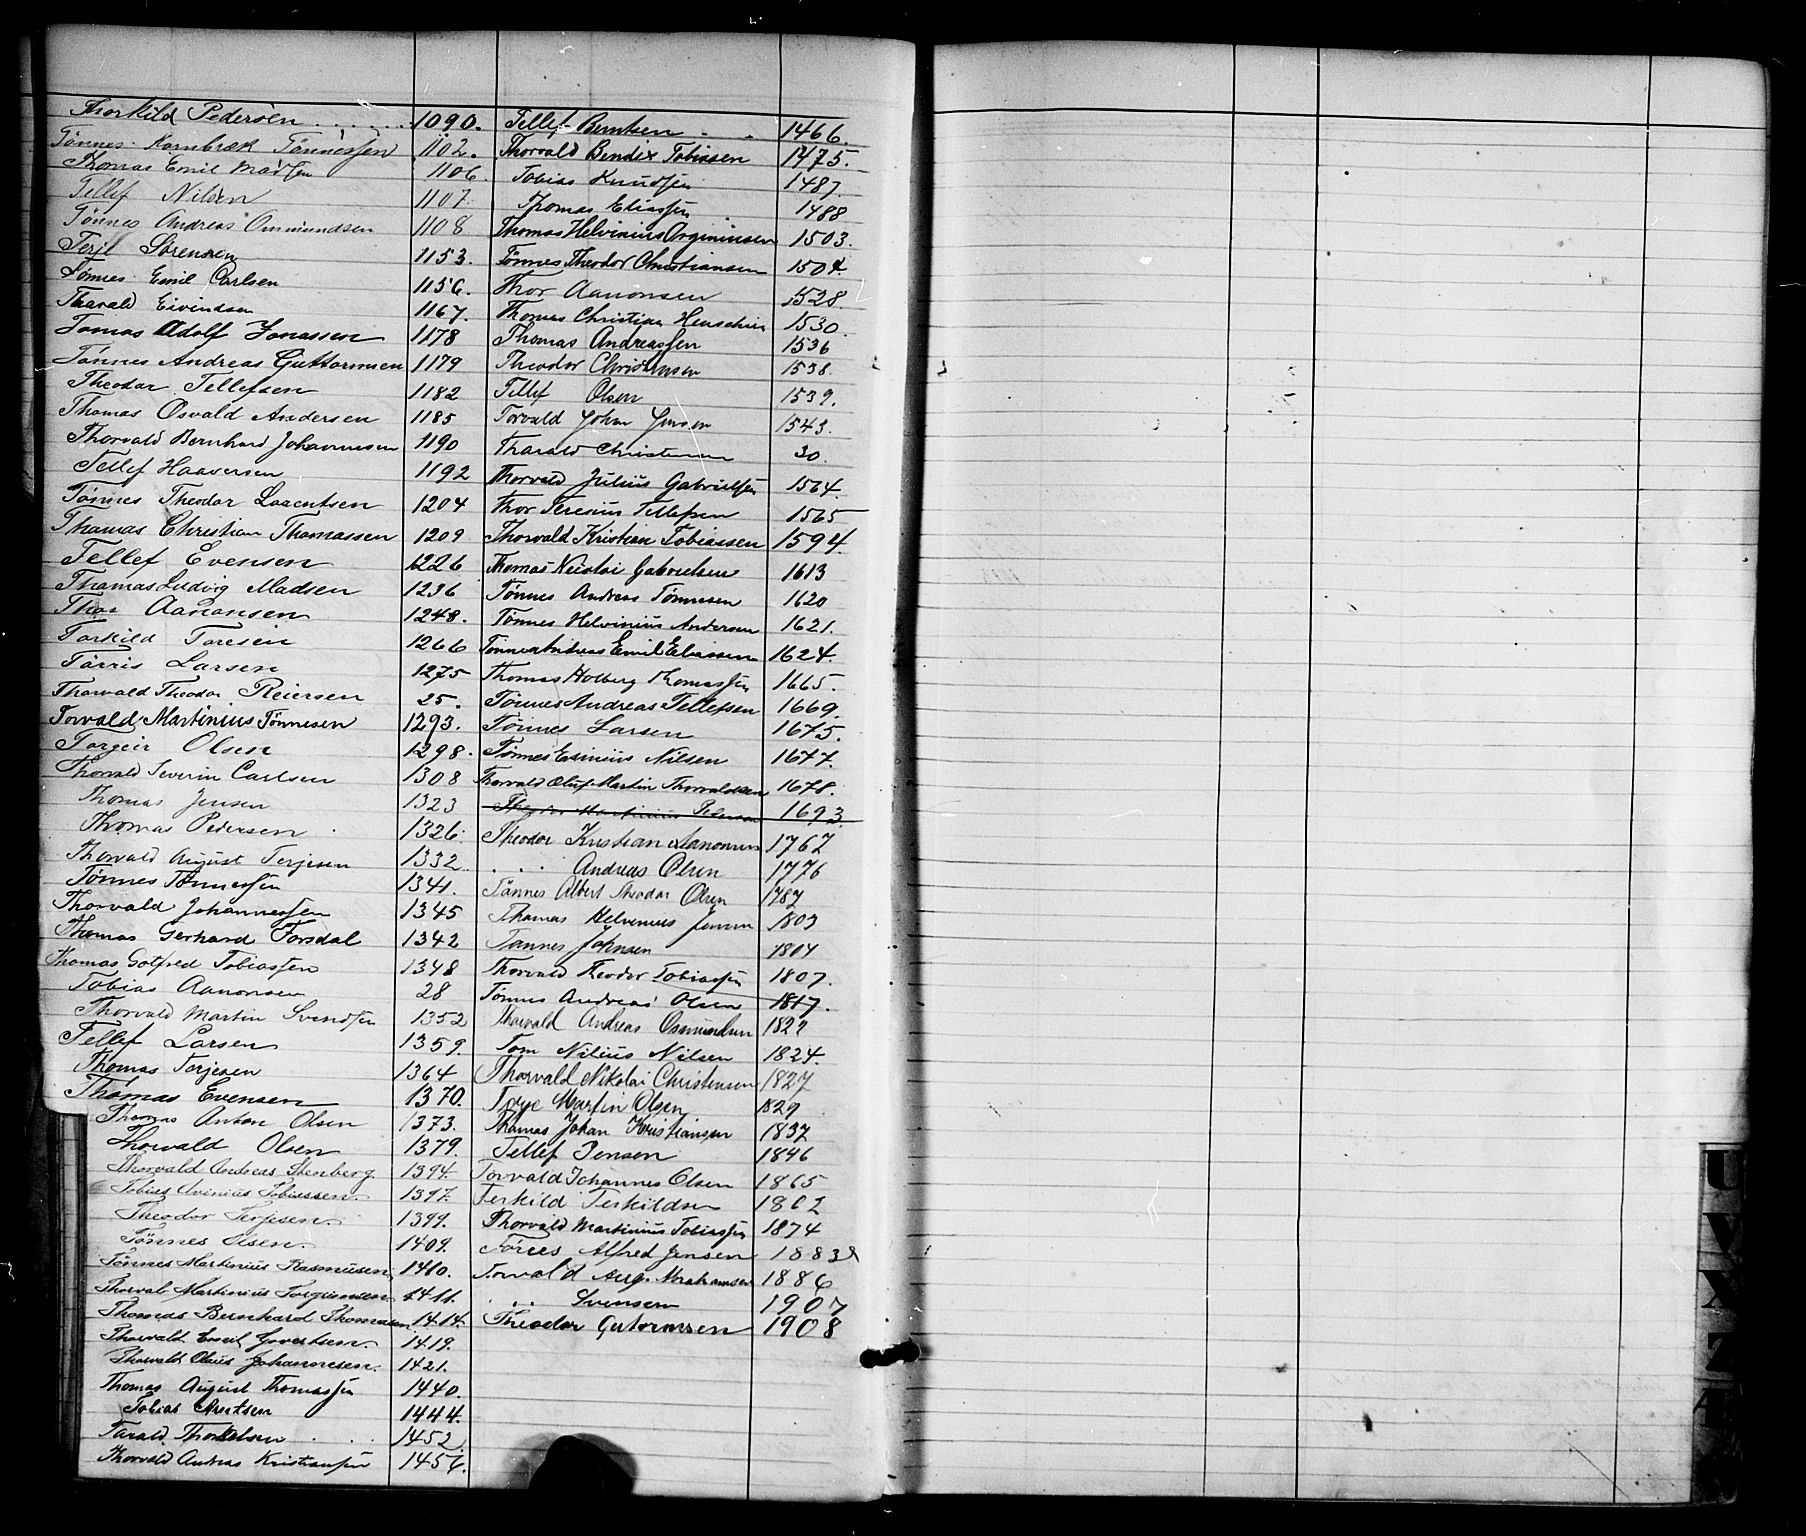 Thorkild Pedersen 1090.
Tønnes Kornbræk Tønnessen 1102.
Thomas Emil Madsen 1106.
Tellef Nilsen 1107.
Tønnes Andreas Ommundsen 1108
Terje Sørensen 1153.
Tønnes Emil Carlsen 1156.
Tharald Eivindsen 1167.
Tomas Adolf Jonassen 1178
Tønnes Andreas Guttormsen 1179
Theodor Tellefsen 1182
Thomas Osvald Andersen 1185
Thorvald Bernhard Johannesen 1190
Tellef Haaversen 1192
Tønnes Theodor Laurentsen 1204
Thomas Christian Thomassen 1209
Tellef Evensen 1226
Thomas Ludvig Madsen 1236
Thor Aanonsen 1248.
Torkild Toresen 1266
Tørris Larsen 1275
Thorvald Theodor Reiersen 25.
Torvald Martinius Tønnesen 1293.
Torgeir Olsen 1298.
Thorvald Severin Carlsen 1308
Thomas Jensen 1323
Thomas Pedersen 1326.
Thorvald August Terjesen 1332.
Tønnes Tønnessen 1341.
Thorvald Johannessen 1345
Thomas Gerhard Forsdal 1342
Thomas Gotfred Tobiassen 1348
Tobias Aanonsen 28
Thorvald Martin Svendsen 1352
Tellef Larsen 1359.
Thomas Torjesen 1364
Thomas Evensen 1370.
Thomas Anton Olsen 1373.
Thorvald Olsen 1379.
Thorvald Andreas Stenberg 1394.
Tobias Avinius Tobiassen 1397.
Theodor Terjesen 1399.
Tønnes Olsen. 1409.
Tønnes Martinius Rasmusen 1410.
Thorval Martinius Torgimsen 1411.
Thomas Bernhard Thomassen 1414.
Thorvald Emil Govertsen. 1419.
Thorvald Olaus Johannesen. 1421.
Thomas August Thomassen 1440.
Tobias Knutsen 1444.
Tarald Thorkelsen 1452
Thorvald Andreas Kristiansen 1456.
Tellef Berntsen 1466.
Thorvald Bendix Tobiasen 1475.
Tobias Knudsen 1487
Thomas Eliassen 1488
Thomas Helvinius Orgininsen 1503.
Tønnes Theodor Christiansen 1504.
Thor Aanonsen 1528
Thomas Christian Henschien 1530.
Thomas Andreassen 1536
Theodor Christensen 1538
Tellef Olsen 1539.
Torvald Johan Jensen 1543.
Tharald Christensen 30.
Thorvald Julius Gabrielsen 1564.
Thor Teresius Tellefsen 1565
Thorvald Kristian Tobiassen 1594.
Thomas Nicolai Gabrielsen 1613
Tønnes Andreas Tønnesen 1620
Tønnes Helvinius Andersen 1621.
Tønnes Andreas Emil Eliassen 1624.
Thomas Holberg Thomassen 1665.
Tønnes Andreas Tellefsen 1669.
Tønnes Larsen 1675.
Tønnes Esinius Nilsen 1677.
Thorvald Oluf Martin Thorvaldsen 1678.
Theodor Martinius Pedersen 1693.
Theodor Kristian Aanonsen 1767
. . . Andreas Olsen 1776
Tønnes Albert Theodor Olsen 1787
Thomas Helvenius Jensen 1803
Tønnes Johnsen 1804
Thorvald Theodor Tobiassen 1807.
Tønnes Andreas Olsen 1817.
Thorvald Andreas Osmundsen 1822
Tom Nilius Nilsen 1824.
Thorvald Nikolai Christensen 1827
Terje Martin Olsen 1829
Thomas Johan Kristiansen 1837
Tellef Jensen 1846
Torvald Johannes Olsen 1865
Terkild Terkildsen 1862
Thorvald Martinius Tobiassen 1874
Tørres Alfred Jensen 1883
Torvald Aug. Abrahamsen 1886
. . . Svensen 1907
Theodor Gutormsen 1908
U
V
X
Z